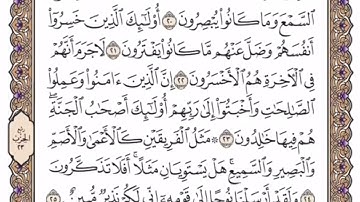 ٱلسَّمْعَ وَمَا كَانُوا۟ يُبْصِرُونَ ٢٠ أُو۟لَـٰٓئِكَ ٱلَّذِينَ خَسِرُوٓا۟
أَنفُسَهُمْ وَضَلَّ عَنْهُم مَّا كَانُوا۟ يَفْتَرُونَ ٢١ لَا جَرَمَ أَنَّهُمْ
فِى ٱلْـَٔاخِرَةِ هُمُ ٱلْأَخْسَرُونَ ٢٢ إِنَّ ٱلَّذِينَ ءَامَنُوا۟ وَعَمِلُوا۟
ٱلصَّـٰلِحَـٰتِ وَأَخْبَتُوٓا۟ إِلَىٰ رَبِّهِمْ أُو۟لَـٰٓئِكَ أَصْحَـٰبُ ٱلْجَنَّةِ ۖ
هُمْ فِيهَا خَـٰلِدُونَ ٢٣ ۞ مَثَلُ ٱلْفَرِيقَيْنِ كَٱلْأَعْمَىٰ وَٱلْأَصَمِّ
وَٱلْبَصِيرِ وَٱلسَّمِيعِ ۚ هَلْ يَسْتَوِيَانِ مَثَلًا ۚ أَفَلَا تَذَكَّرُونَ
٢٤ وَلَقَدْ أَرْسَلْنَا نُوحًا إِلَىٰ قَوْمِهِۦٓ إِنِّى لَكُمْ نَذِيرٌ مُّبِينٌ ٢٥
ربع
الحزب
٢٣